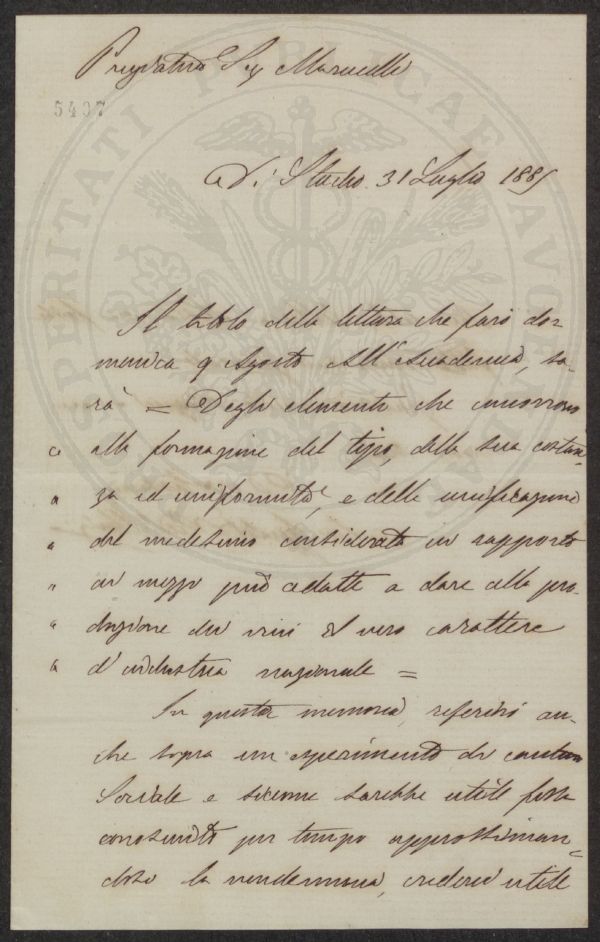 Pregiatmo Sig Marucelli
5407
Di Studio 31 Luglio 1885
Il titolo della lettura che farò do=
menica 9 Agosto All'Accademia, sa-
rà = Degli elementi che concorrono
alla formazione del tipo, della sua costan
za ed uniformità, e della unificazione
del medesimo considerata in rapporto
ai mezzi più adatti a dare alla pro-
duzione dei vini il vero carattere
d'industria nazionale =
In questa memoria, referirò an-
che sopra un esperimento di cantina
Sociale e siccome sarebbe utile fosse
conosciuto per tempo approssiman=
dosi la vendemmia, crederei utile
SPERITATI PUBLICAE AUGENDAE